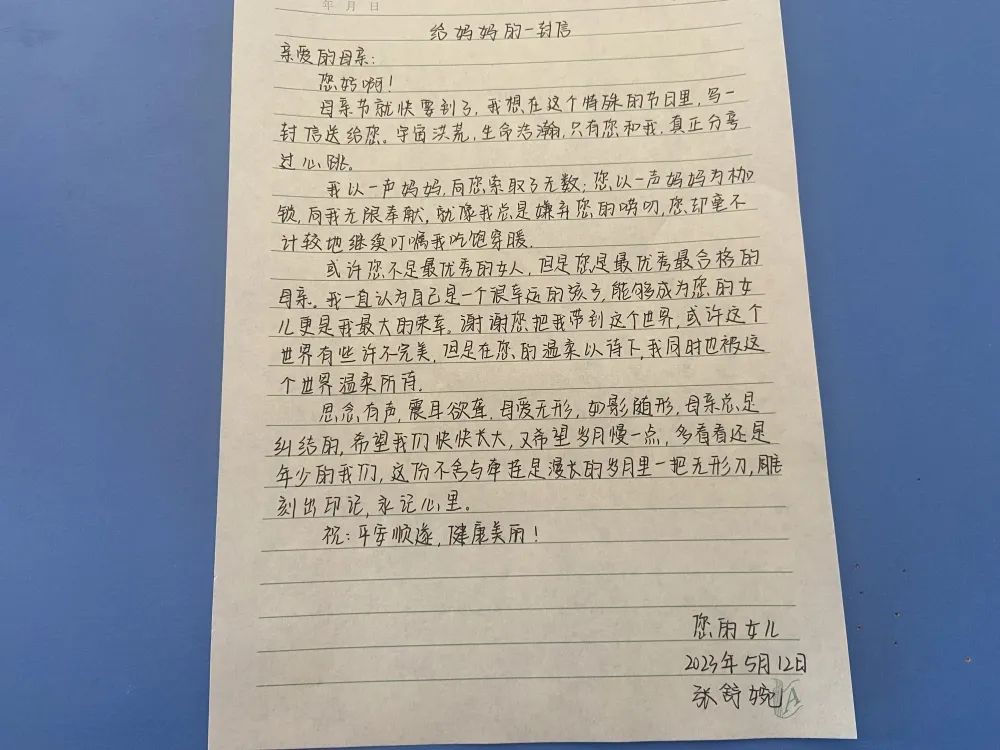 年 月 日
给妈妈的一封信
亲爱的母亲:
您好啊!
母亲节就快要到了,我想在这个特殊的节日里,写一
封信送给您。宇宙洪荒,生命浩瀚,只有您和我,真正分享
过心跳。
我以一声妈妈,向您索取了无数;您以一声妈妈为枷
锁,向我无限奉献,就像我总是嫌弃您的唠叨,您却毫不
计较地继续叮嘱我吃饱穿暖.
或许您不是最优秀的女人,但是您是最优秀最合格的
母亲。我一直认为自己是一个很幸运的孩子,能够成为您的女
儿更是我最大的荣幸。谢谢您把我带到这个世界,或许这个
世界有些许不完美,但是在您的温柔以待下,我同时也被这
个世界温柔所待.
思念有声,震耳欲聋,母爱无形,如影随形,母亲总是
纠结的,希望我们快快长大,又希望岁月慢一点,多看看还是
年少的我们,这份不舍与牵挂是漫长的岁月里一把无形刀,雕
刻出印记,永记心里。
祝:平安顺遂,健康美丽!
您的女儿
2023年5月12日
张舒婉